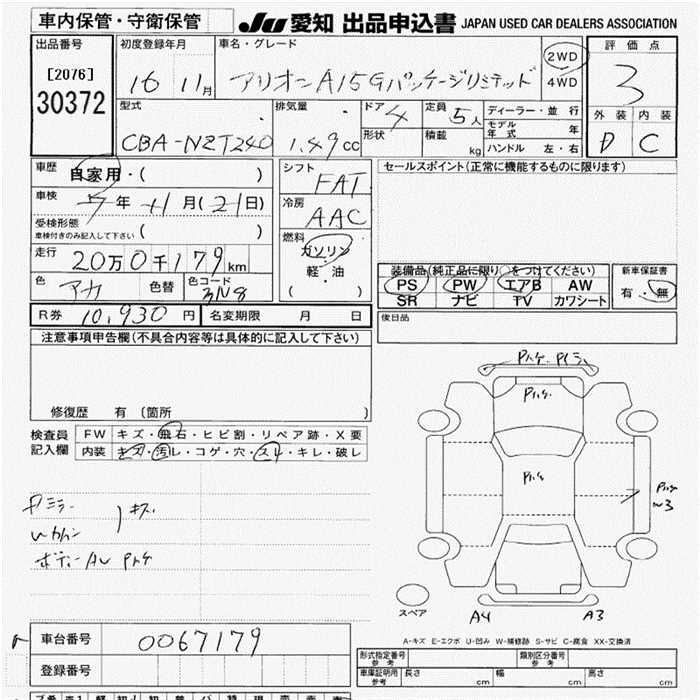 車内保管・守衛保管
JU 愛知 出品申込書 JAPAN USED CAR DEALERS ASSOCIATION
出品番号
[2076]
30372
初度登録年月
16 11月
車名・グレード
アリオン A15Gパッケージリミテッド
2WD
4WD
評価点
3
外装 内装
D C
型式
CBA-NZT240
排気量
1.49cc
ドア 4
形状
定員 5人
積載 kg
ディーラー・並行
モデル年式 年
ハンドル 左・右
車歴
自家用・( )
車検
7年 11月(21日)
受検形態
車検付きのみ記入して下さい ( )
走行
20万0千179km
色
アカ
色替
色コード
3N8
シフト
FAT
冷房
AAC
燃料
ガソリン
・
軽・油
( )
セールスポイント(正常に機能するものに限ります)
装備品(純正品に限り○をつけてください)
PS PW エアB AW
SR ナビ TV カワシート
新車保証書
有・無
R券 10,930円
名変期限 月 日
後日品
注意事項申告欄(不具合内容等は具体的に記入して下さい)
修復歴 有(箇所 )
検査員
記入欄
FW キズ・飛石・ヒビ割・リペア跡・X要
内装 キズ・汚レ・コゲ・穴・スレ・キレ・破レ
キズ
ボディーAU Pハゲ
Pハゲ
Pハゲ
Pハゲ
スペア
A4
A3
A-キズ E-エクボ U-凹み W-補修跡 S-サビ C-腐食 XX-交換済
車台番号
0067179
登録番号
形式指定番号
参考
類別区分番号
参考
車庫証明用
参考
長さ cm
幅 cm
高さ cm